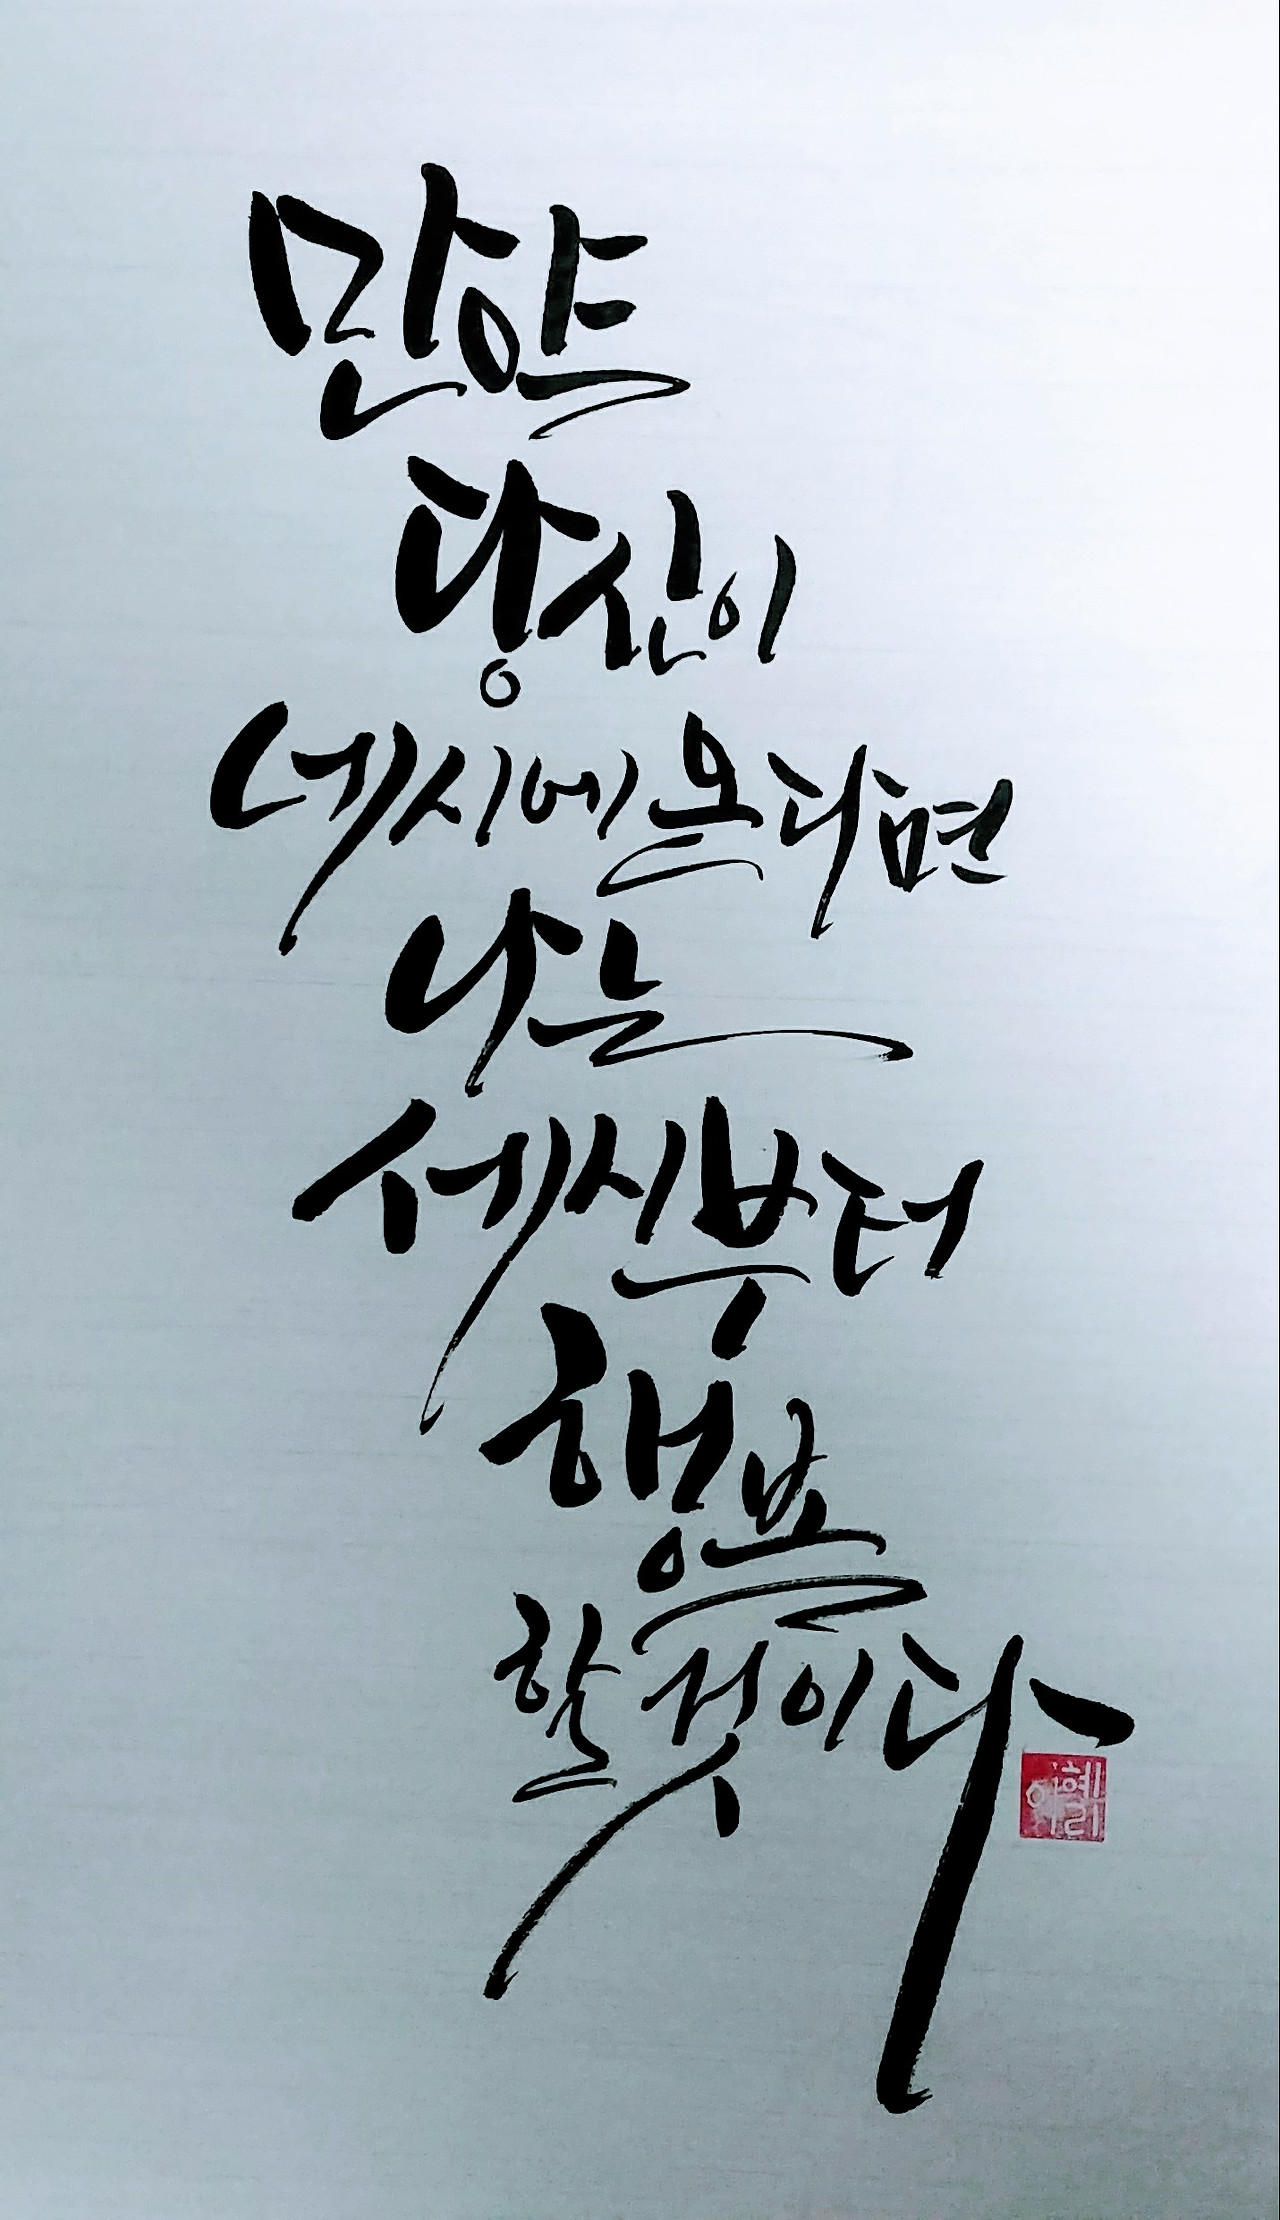 만약
당신이
네시에 온다면
나는
세시부터
행복
할 것이다